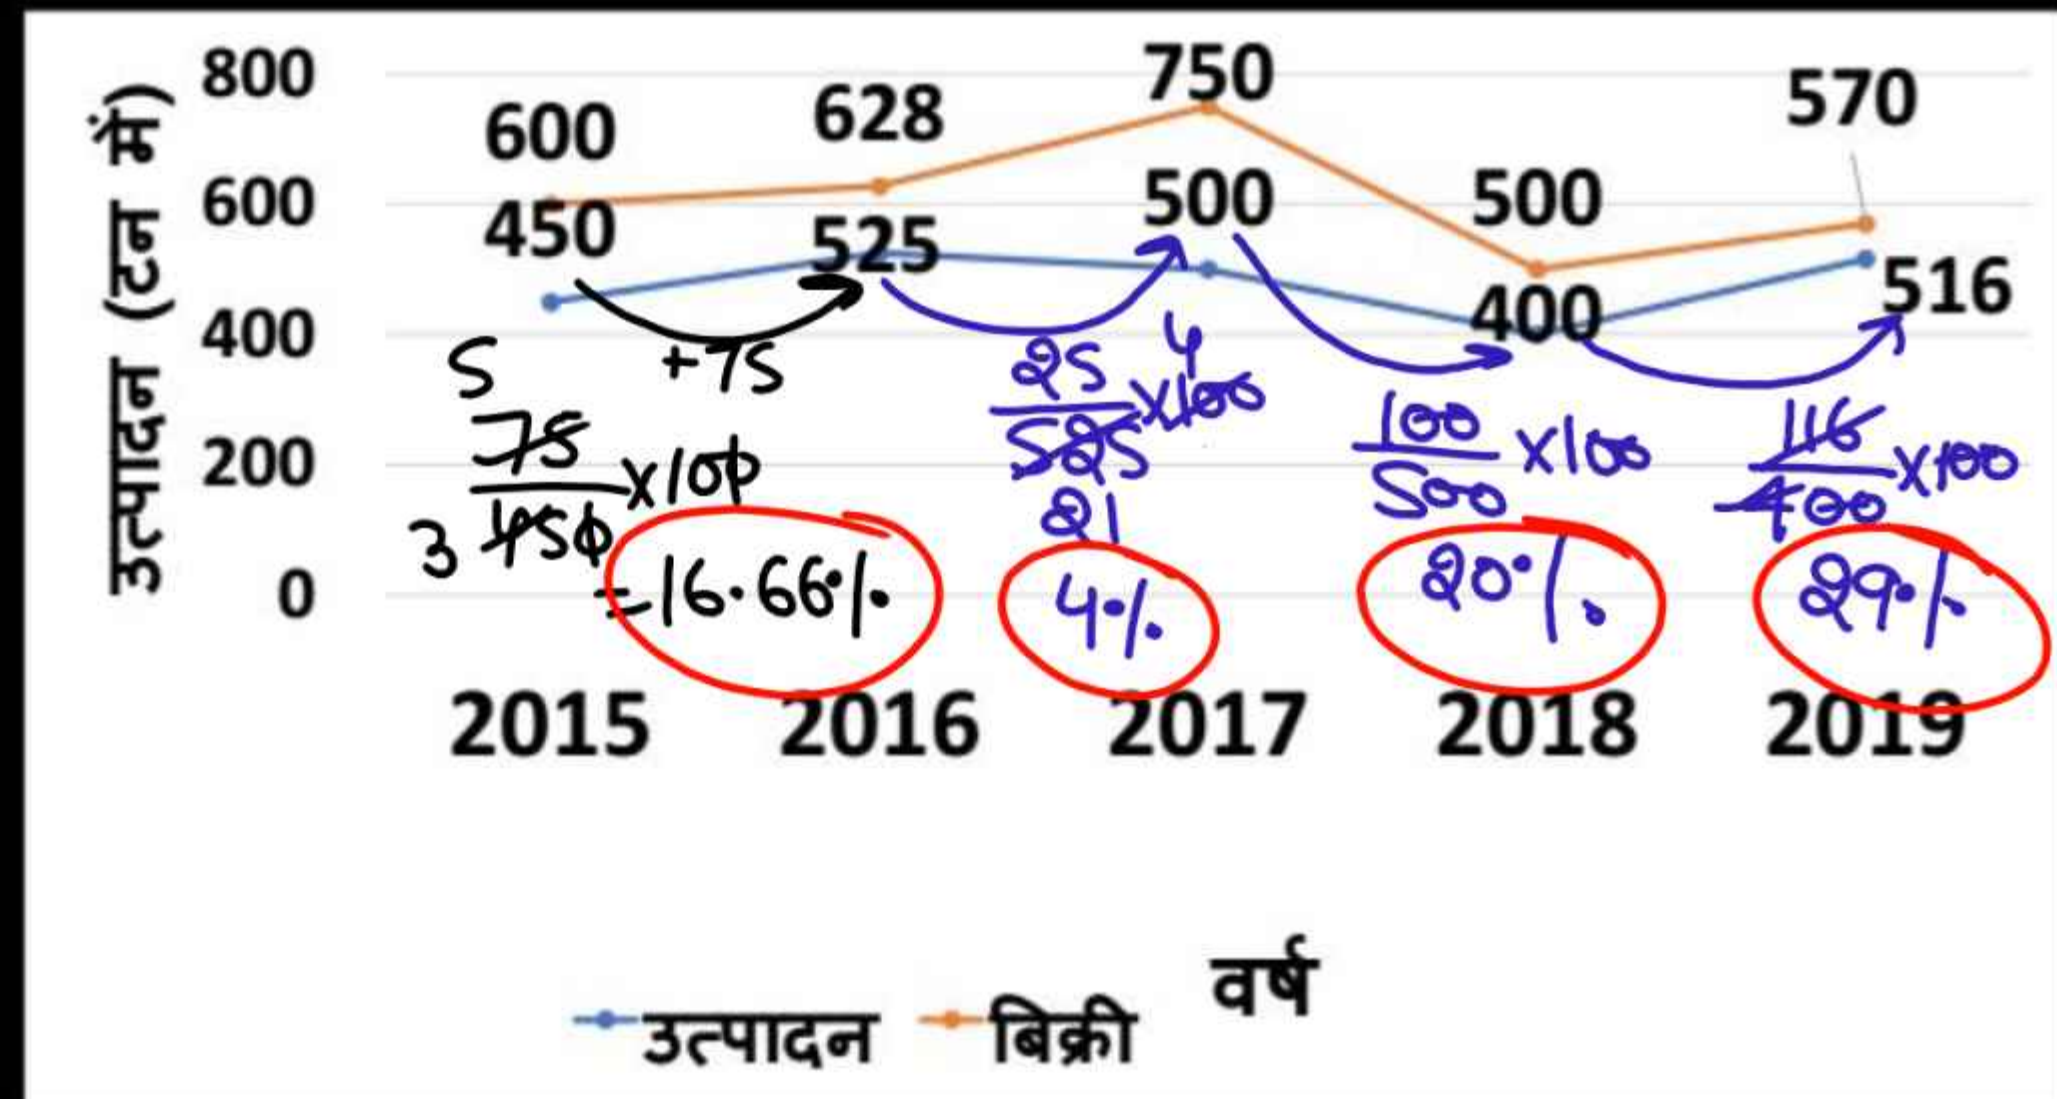 उत्पादन (टन में)
800
600
400
200
0
600
628
750
500
570
450
525
500
400
516
+75
5
75
450
3
x100
=16.66%
25
525
x100
4
21
4%
100
500
x100
20%
116
400
x100
29%
2015 2016 2017 2018 2019
वर्ष
उत्पादन बिक्री